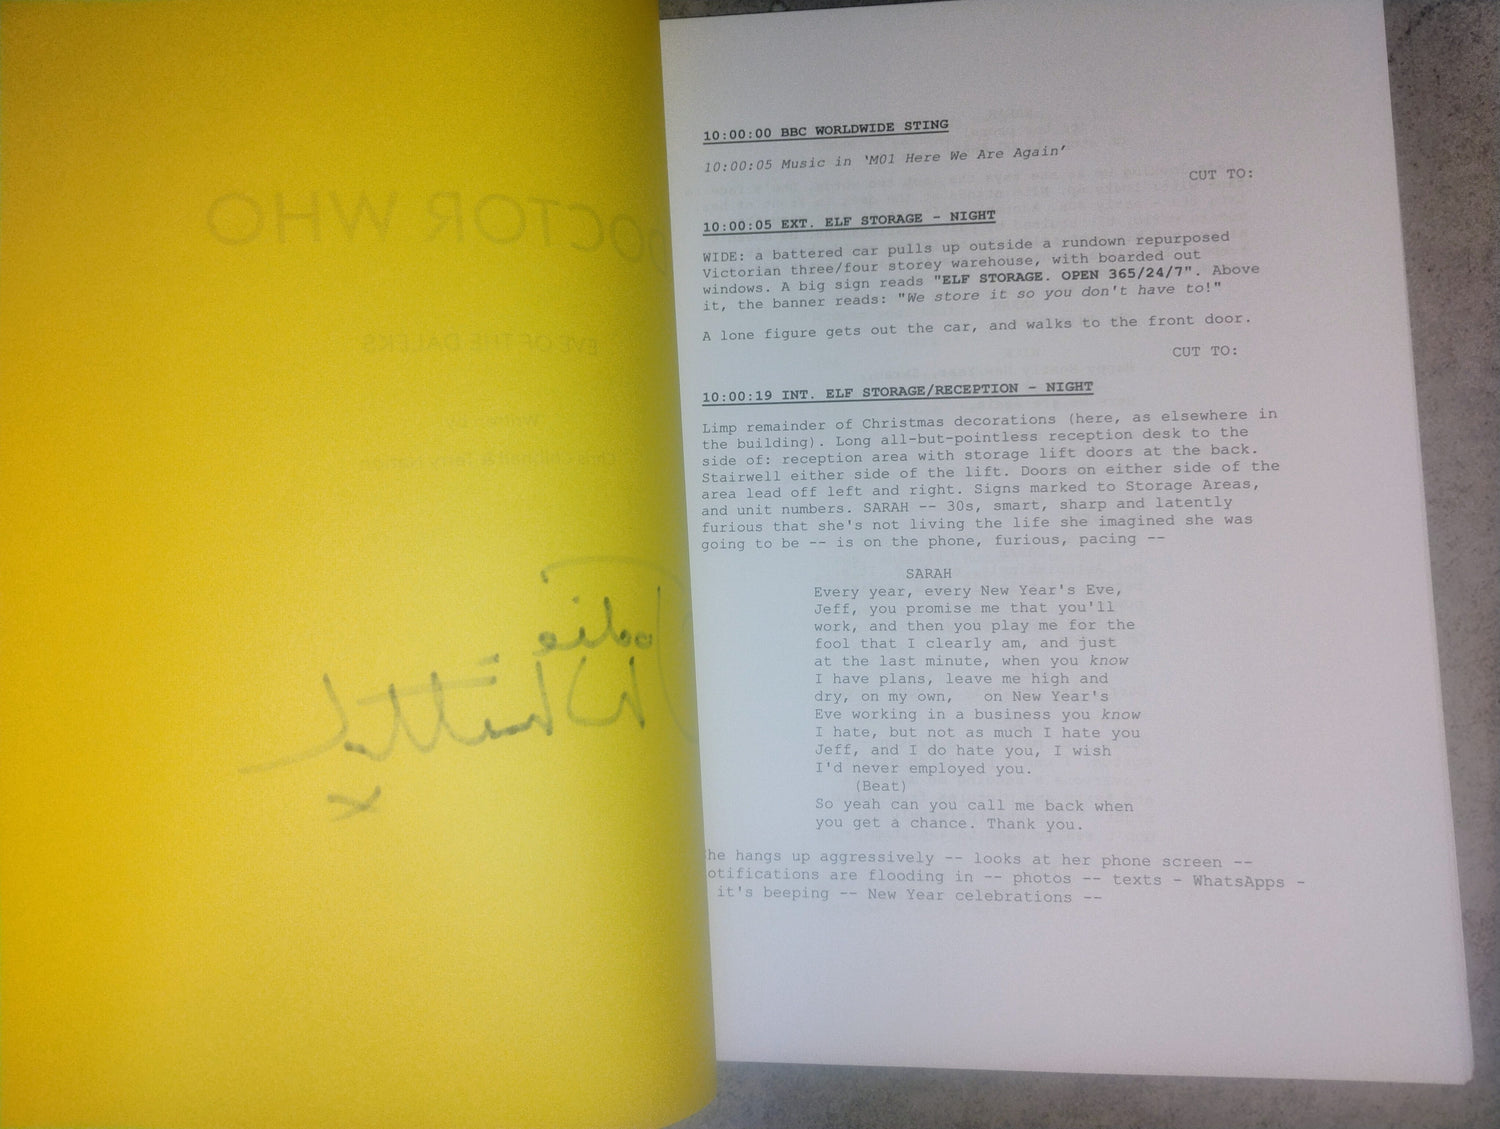 DOCTOR WHO
EVE OF THE DALEKS
Jodie
Whittak
x
10:00:00 BBC WORLDWIDE STING
10:00:05 Music in ‘M01 Here We Are Again’
CUT TO:
10:00:05 EXT. ELF STORAGE – NIGHT
WIDE: a battered car pulls up outside a rundown repurposed
Victorian three/four storey warehouse, with boarded out
windows. A big sign reads "ELF STORAGE. OPEN 365/24/7". Above
it, the banner reads: "We store it so you don't have to!"
A lone figure gets out the car, and walks to the front door.
CUT TO:
10:00:19 INT. ELF STORAGE/RECEPTION – NIGHT
Limp remainder of Christmas decorations (here, as elsewhere in
the building). Long all-but-pointless reception desk to the
side of: reception area with storage lift doors at the back.
Stairwell either side of the lift. Doors on either side of the
area lead off left and right. Signs marked to Storage Areas,
and unit numbers. SARAH -- 30s, smart, sharp and latently
furious that she's not living the life she imagined she was
going to be -- is on the phone, furious, pacing --
SARAH
Every year, every New Year's Eve,
Jeff, you promise me that you'll
work, and then you play me for the
fool that I clearly am, and just
at the last minute, when you know
I have plans, leave me high and
dry, on my own, on New Year's
Eve working in a business you know
I hate, but not as much I hate you
Jeff, and I do hate you, I wish
I'd never employed you.
(Beat)
So yeah can you call me back when
you get a chance. Thank you.
he hangs up aggressively -- looks at her phone screen --
otifications are flooding in -- photos -- texts - WhatsApps -
it's beeping -- New Year celebrations --